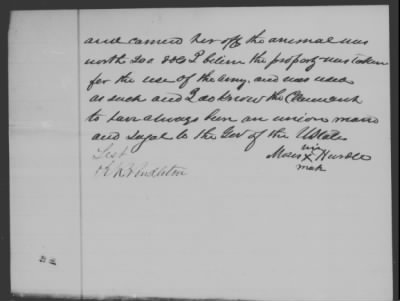 and carried her off the animal was
worth 200 dols I believe the property was taken
for the use of the army. and was used
as such and I do know the Claimant
to have always been an union man
and Loyal to the Gov of the UState
his
Test Moses X Hurdle
mark